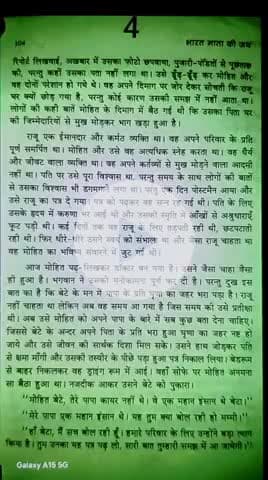 4
304 भारत माता की जय
रिपोर्ट लिखवाई, अखबार में उसका फोटो छपवाया, पुजारी-पंडितों से पूछताछ
की, परन्तु कहीं उसका पता नहीं लगा था। उसे ढूँढ़-ढूँढ़ कर मोहित और
वह दोनों परेशान हो गये थे। वह अपने दिमाग पर जोर देकर सोचती कि राजू
घर क्यों छोड़ गया है, परन्तु कोई कारण उसकी समझ में नहीं आता था।
लोगों की कही बातें मोहित के दिमाग में बैठ गई थीं कि उसका पिता घर
की जिम्मेदारियों से मुख मोड़कर भाग खड़ा हुआ है।
राजू एक ईमानदार और कर्मठ व्यक्ति था। वह अपने परिवार के प्रति
पूर्ण समर्पित था। मोहित और उसे वह अत्यधिक स्नेह करता था। वह धैर्य
और जीवट वाला व्यक्ति था। वह अपने कर्तव्यों से मुख मोड़ने वाला आदमी
नहीं था। पति पर उसे पूरा विश्वास था, परन्तु समय के साथ लोगों की बातों
से उसका विश्वास भी डगमगाने लगा था। परन्तु एक दिन पोस्टमैन आया और
उसे राजू का पत्र दे गया। पत्र को पढ़कर वह सन्न रह गई थी। पति के लिए
उसके हृदय में करुणा भर आई थी और उसकी स्मृति में आँखों से अश्रुधाराएँ
फूट पड़ी थीं। कई दिनों तक वह राजू के लिए तड़पती रही थी, छटपटाती
रही थी। फिर धीरे-धीरे उसने स्वयं को संभाला था और जैसा राजू चाहता था
वह मोहित का भविष्य संवारने में जुट गई थी।
आज मोहित पढ़-लिखकर डॉक्टर बन गया है। उसने जैसा चाहा वैसा
ही हुआ है। भगवान ने उसकी मनोकामना पूर्ण कर दी है। परन्तु दुख इस
बात का है कि बेटे के मन में पापा के प्रति घृणा का जहर भरा पड़ा है। राजू
नहीं चाहता था लेकिन अब वह समय आ गया है जिस समय की उसे प्रतीक्षा
थी। अब उसे मोहित को अपने पापा के बारे में सब कुछ बता देना चाहिए।
जिससे बेटे के अन्दर अपने पिता के प्रति भरा हुआ घृणा का जहर नष्ट हो
जाये और उसे जीवन की सार्थक दिशा मिल सके। उसने हाथ जोड़कर पति
से क्षमा माँगी और उसकी तस्वीर के पीछे पड़ा हुआ पत्र निकाल लिया। बेडरूम
से बाहर निकलकर वह ड्राइंग रूम में आई। वहाँ सोफे पर मोहित अनमना
सा बैठा हुआ था। नजदीक आकर उसने बेटे को पुकारा।
“मोहित बेटे, तेरे पापा कायर नहीं थे। वे एक महान इंसान थे बेटा।”
“मेरे पापा एक महान इंसान थे। यह तुम क्या बोल रही हो मम्मी।”
“हाँ बेटा, मैं सच बोल रही हूँ। हमारे परिवार के लिए उन्होंने बड़ा त्याग
किया है। तुम उनका यह पत्र पढ़ लो, सारी बात तुम्हारी समझ में आ जायेगी।”
Galaxy A15 5G